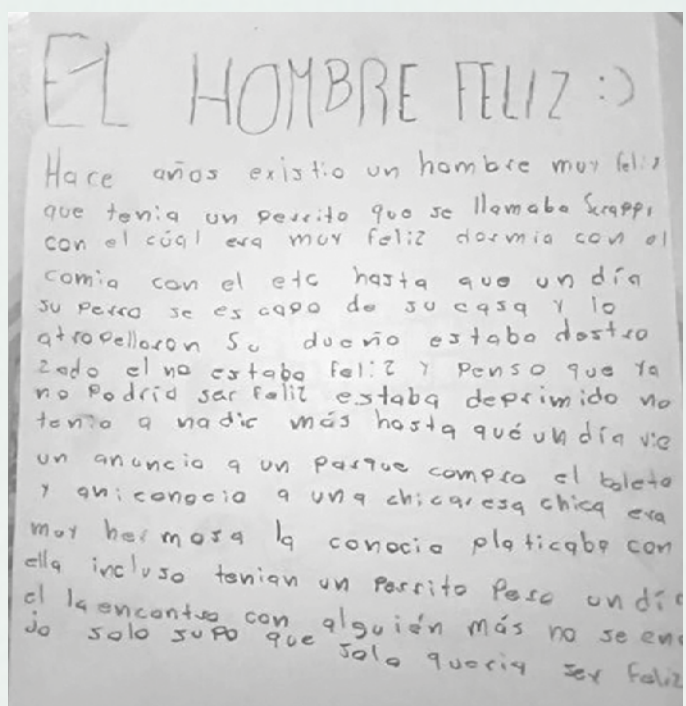 EL HOMBRE FELIZ :)
Hace años existio un hombre muy feliz
que tenia un perrito que se llamaba Scrappi
con el cúal era muy feliz dormia con el
comia con el etc hasta que un día
su perro se es capo de su casa y lo
atropellaron Su dueño estaba destro
zado el no estaba feliz y penso que ya
no podria ser feliz estaba deprimido no
tenia a nadie más hasta qué un día vie
un anuncio a un parque compro el boleto
y ahi conocio a una chica esa chica era
muy hermosa la conocio platicaba con
ella incluso tenian un perrito Pero un día
el la encontro con alguién más no se eno
jo solo supo que solo queria ser feliz